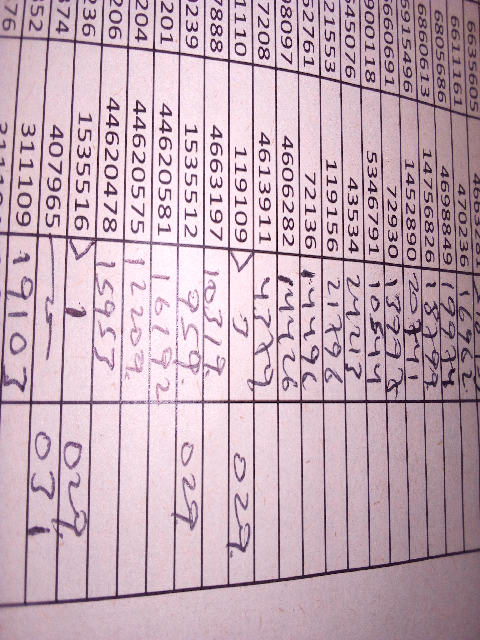 6635605
6611161 470236 16962
6805686 4698849 19974
6860613 14756826 18799
5915496 1452890 20741
660691 72930 13998
900118 5346791 10544
45076 43534 24213
21553 119156 21796
62761 72136 14496
8097 4606282 14426
7208 4613911 4379
1110 119109 > 3 029.
7888 4663197 10319.
0239 1535512 959. 029
201 44620581 16192
204 44620575 12209.
206 44620478 15953
236 1535516 > 1 029.
374 407965 5 031
352 311109 19103
76